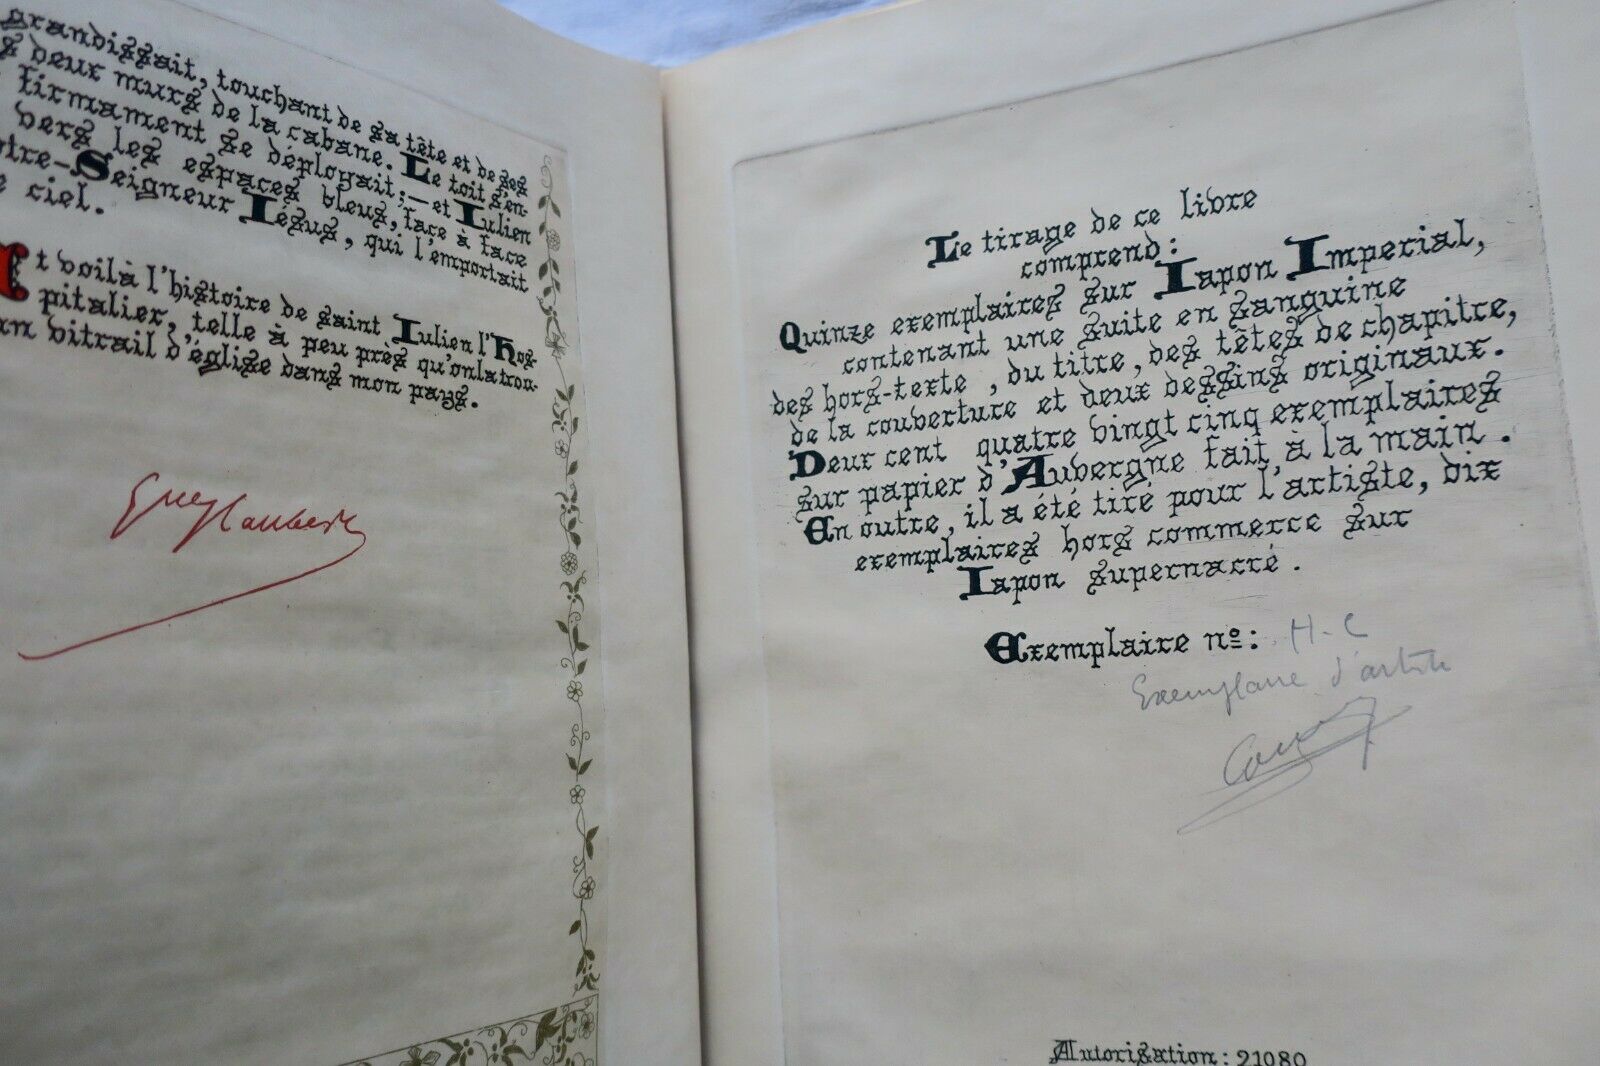 grandissait, touchant de sa tête et de ses
deux murs de la cabane. Le toit s'en-
firmament se déployait;—et Iulien
vers les espaces bleus, face à face
Seigneur Iésus, qui l'emportait
ciel.
Et voilà l'histoire de saint Iulien l'Hos-
pitalier, telle à peu près qu'on la trou-
vitrail d'église dans mon pays.
Gve Flaubert
Le tirage de ce livre
comprend:
Quinze exemplaires sur Iapon Imperial,
contenant une suite en sanguine
des hors-texte, du titre, des têtes de chapitre,
de la couverture et deux dessins originaux.
Deux cent quatre vingt cinq exemplaires
sur papier d'Auvergne fait, à la main.
En outre, il a été tiré pour l'artiste, dix
exemplaires hors commerce sur
Iapon supernacré.
Exemplaire nº: H-C
Exemplaire d'artiste
Autorisation: 21080